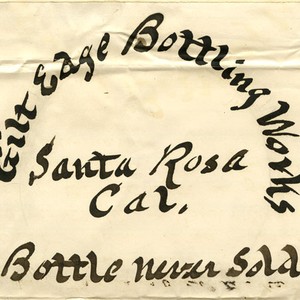 Gilt Edge Bottling Works
Santa Rosa
Cal.
Bottle never Sold